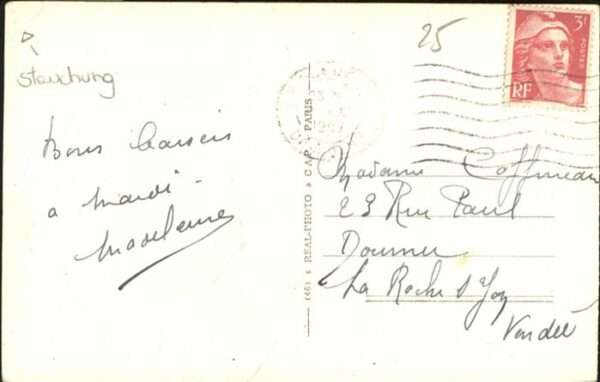 25
3F
POSTES
RF
Bons baisers
à mardi -
Madeleine
REAL-PHOTO
C.A.P. - PARIS
Madame
23 Rue Paul
Doumer
La Roche s/ Yon
Vendée